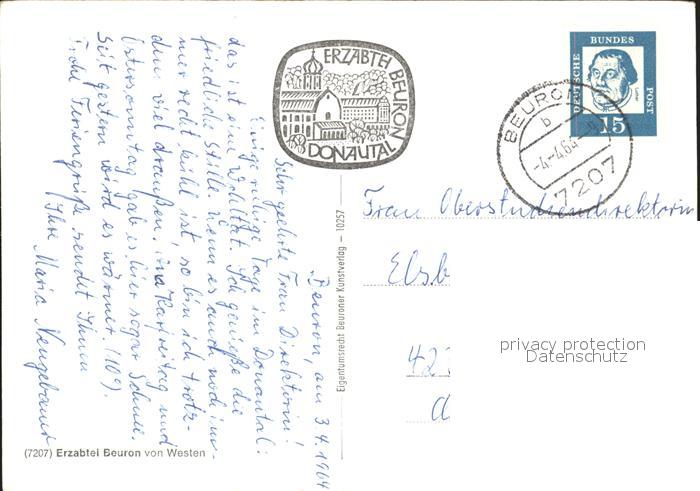 ERZABTEI BEURON
DONAUTAL
DEUTSCHE BUNDES POST
Luther
15
BEURON
b
-4.-4.64-9
7207
Beuron, am 3.4.1964
Sehr geehrte Frau Direktorin!
Einige ruhige Tage im Donautal:
das ist eine Wohltat. Ich genieße die
friedliche Stille. Wenn es auch noch im-
mer recht kühl ist, so bin ich trotz-
dem viel draußen. Am Karfreitag und
Ostersonntag gab es hier sogar Schnee.
Seit gestern wird es wärmer. (10°).
Frohe Feriengrüße sendet Ihnen
Ihre Maria Neugebauer
Eigentumsrecht Beuroner Kunstverlag — 10257
Frau Oberstudiendirektorin
Elsb
42
privacy protection
Datenschutz
(7207) Erzabtei Beuron von Westen